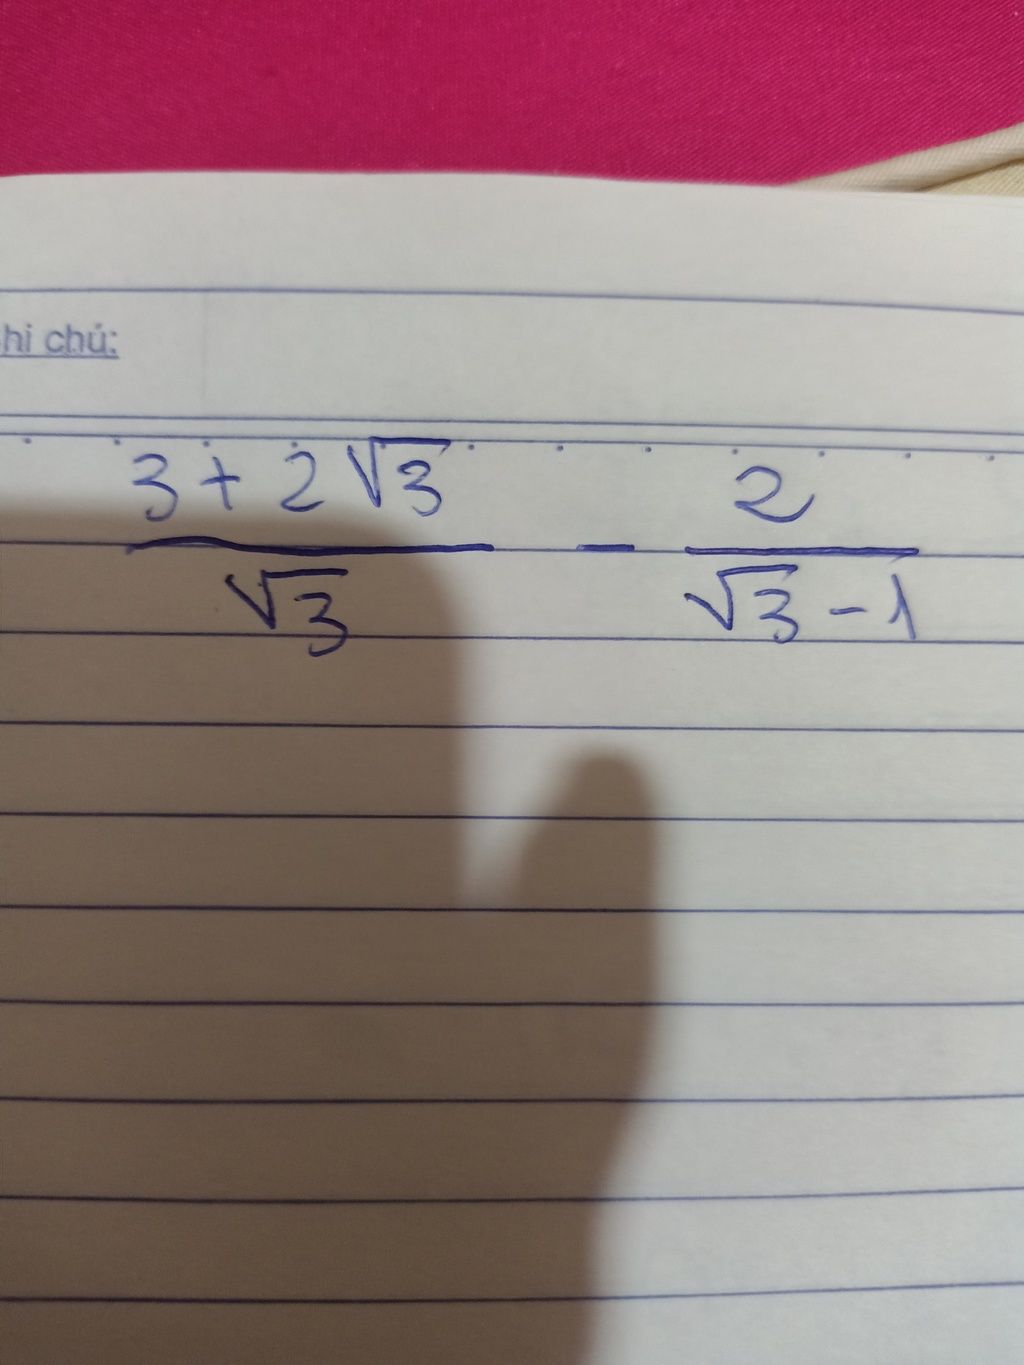 hi chú:
3 + 2√3 / √3 - 2 / √3 - 1